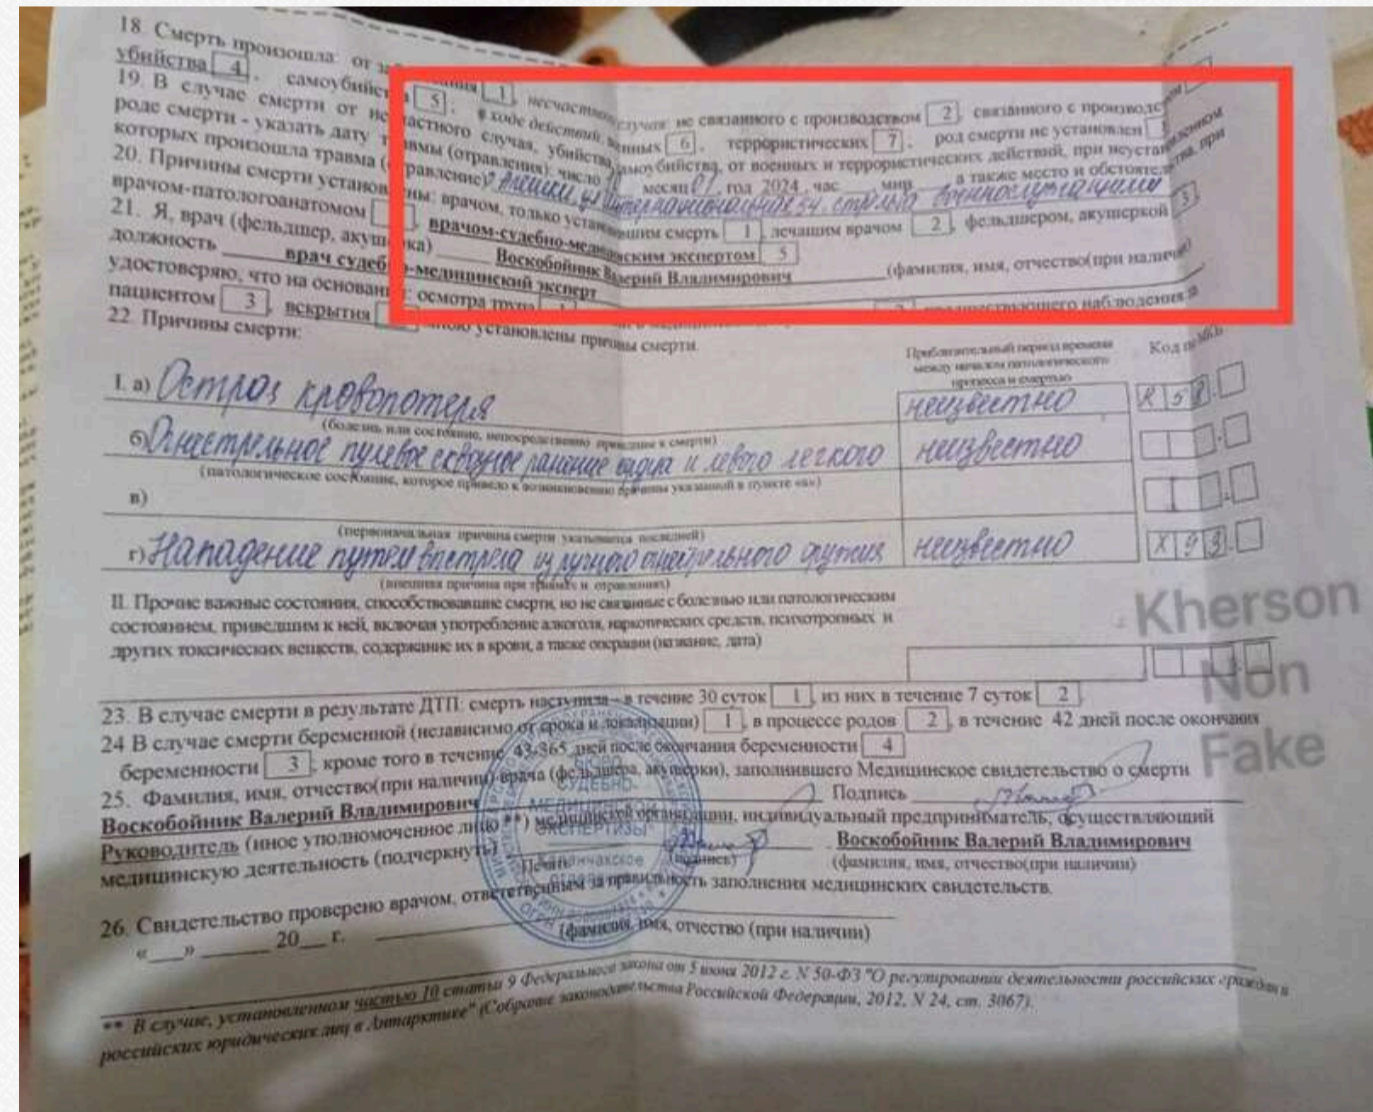 18. Смерть произошла: от заболевания 1, несчастного случая: не связанного с производством 2, связанного с производством
убийства 4, самоубийства 5, в ходе действий: военных 6, террористических 7, род смерти не установлен
19. В случае смерти от несчастного случая, убийства, самоубийства, от военных и террористических действий, при неустановленном
роде смерти - указать дату травмы (отравления): число месяц 01 год 2024, час мин, а также место и обстоятельства, при
которых произошла травма (отравление) Алешки, ул Интернациональная стрельба военнослужащими
20. Причины смерти установлены: врачом, только установившим смерть 1, лечащим врачом 2, фельдшером, акушеркой 3,
врачом-патологоанатомом , врачом-судебно-медицинским экспертом 5
21. Я, врач (фельдшер, акушерка) Воскобойник Валерий Владимирович (фамилия, имя, отчество(при наличии)
должность врач судебно-медицинский эксперт
удостоверяю, что на основании: осмотра трупа 1, предшествующего наблюдения за
пациентом 3, вскрытия мною установлены причины смерти.
22. Причины смерти:
Приблизительный период времени между началом патологического процесса и смертью
Код по МКБ
I. а) Острая кровопотеря неизвестно R 58.
(болезнь или состояние, непосредственно приведшее к смерти)
б) Огнестрельное пулевое сквозное ранение и левого легкого неизвестно
(патологическое состояние, которое привело к возникновению причины указанной в пункте «а»)
в)
(первоначальная причина смерти указывается последней)
г) Нападение путем выстрела из ручного огнестрельного оружия неизвестно X 93.
(внешняя причина при травмах и отравлениях)
II. Прочие важные состояния, способствовавшие смерти, но не связанные с болезнью или патологическим
состоянием, приведшим к ней, включая употребление алкоголя, наркотических средств, психотропных и
других токсических веществ, содержание их в крови, а также операции (название, дата)
Kherson
Non
Fake
23. В случае смерти в результате ДТП: смерть наступила - в течение 30 суток 1, из них в течение 7 суток 2.
24 В случае смерти беременной (независимо от срока и локализации) 1, в процессе родов 2, в течение 42 дней после окончания
беременности 3, кроме того в течение 43-365 дней после окончания беременности 4
25. Фамилия, имя, отчество(при наличии) врача (фельдшера, акушерки), заполнившего Медицинское свидетельство о смерти
Воскобойник Валерий Владимирович Подпись
Руководитель (иное уполномоченное лицо **) медицинской организации, индивидуальный предприниматель, осуществляющий
медицинскую деятельность (подчеркнуть) Воскобойник Валерий Владимирович
Печать (подпись) (фамилия, имя, отчество(при наличии)
БЮРО
СУДЕБНО-
МЕДИЦИНСКОЙ
ЭКСПЕРТИЗЫ"
Каланчакское
26. Свидетельство проверено врачом, ответственным за правильность заполнения медицинских свидетельств.
«___» ______ 20__ г.
(фамилия, имя, отчество (при наличии)
** В случае, установленном частью 10 статьи 9 Федерального закона от 5 июня 2012 г. N 50-ФЗ "О регулировании деятельности российских граждан и
российских юридических лиц в Антарктике" (Собрание законодательства Российской Федерации, 2012, N 24, ст. 3067).